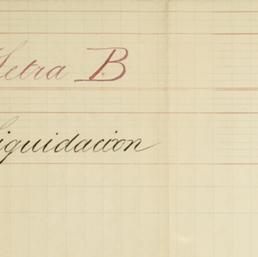 Letra B
Liquidacion